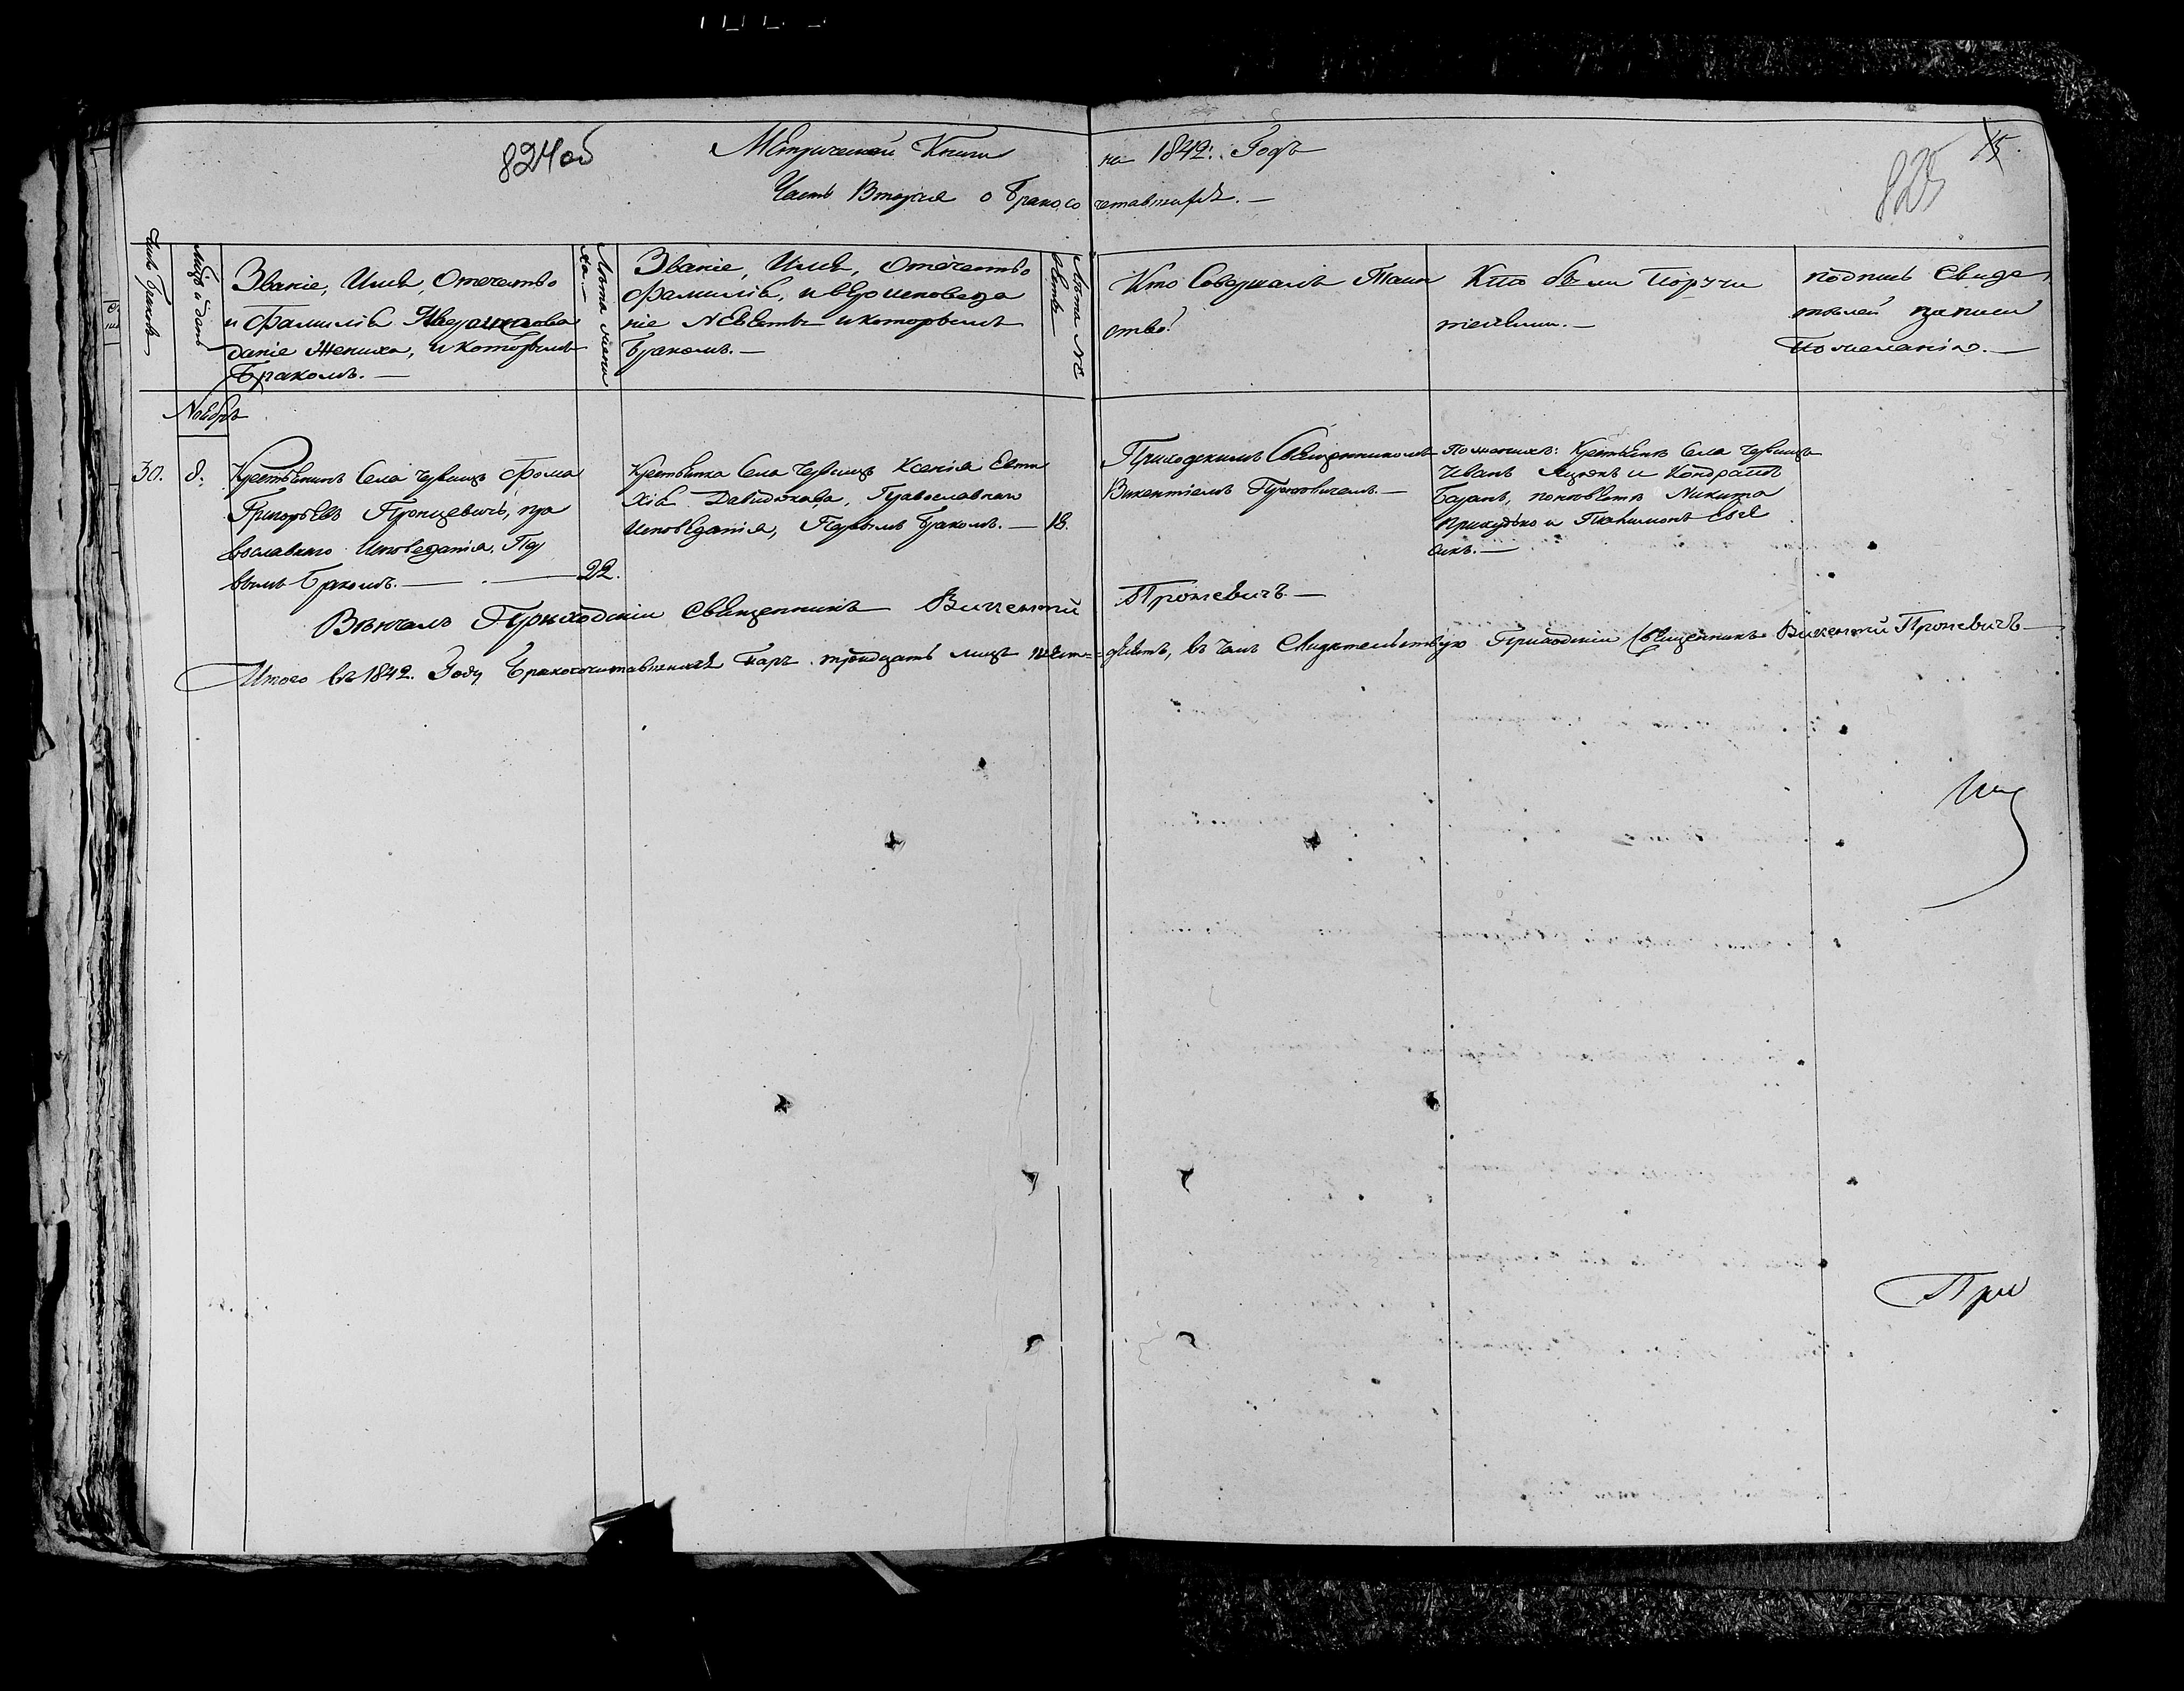 824об
Метрической Книги на 1842: Годъ
825
15.
Часть Вторая о Бракосочетавшихся.—
Число Браковъ
Мцъ и день
Званіе, Имя, Отечество
и Фамилія,
даніе Жениха, и которымъ
Бракомъ.—
Лѣта Жени
ха.—
Званіе, Имя, Отечество
Фамилія, и вѣроисповеда
ніе Невѣсты и которымъ
Бракомъ.—
Лѣта Не
вѣсты
Кто Совершалъ Таин
ство?
Кто были Поручи
телями.—
подпись Свиде
телей записи
По желанію.—
Ноябрь
30.
8.
Крестьянинъ Села Червищъ Фома
Григорьевъ Пронцевичь, пра
вославнаго Исповеданія, Пер
вымъ Бракомъ.—
22.
Крестьянка Села Червищъ Ксенія Евти
хія Давидюкова, Православнаго
Исповѣданія, Первымъ Бракомъ.—
18.
Приходскимъ Священникомъ
Викентіемъ
По женихѣ: Крестьяне Села Червищъ
Иванъ и Кондратъ
по невѣсте Никита
Приходько и
Вѣнчалъ Приходскій Священникъ Викентій Проневичъ—
Итого въ 1842. Году Бракосочитавшихся Паръ тридцать лицъ шесть=
=десятъ, въ чемъ Свидѣтельствую Приходскій Священникъ Викентій Проневичъ—
При